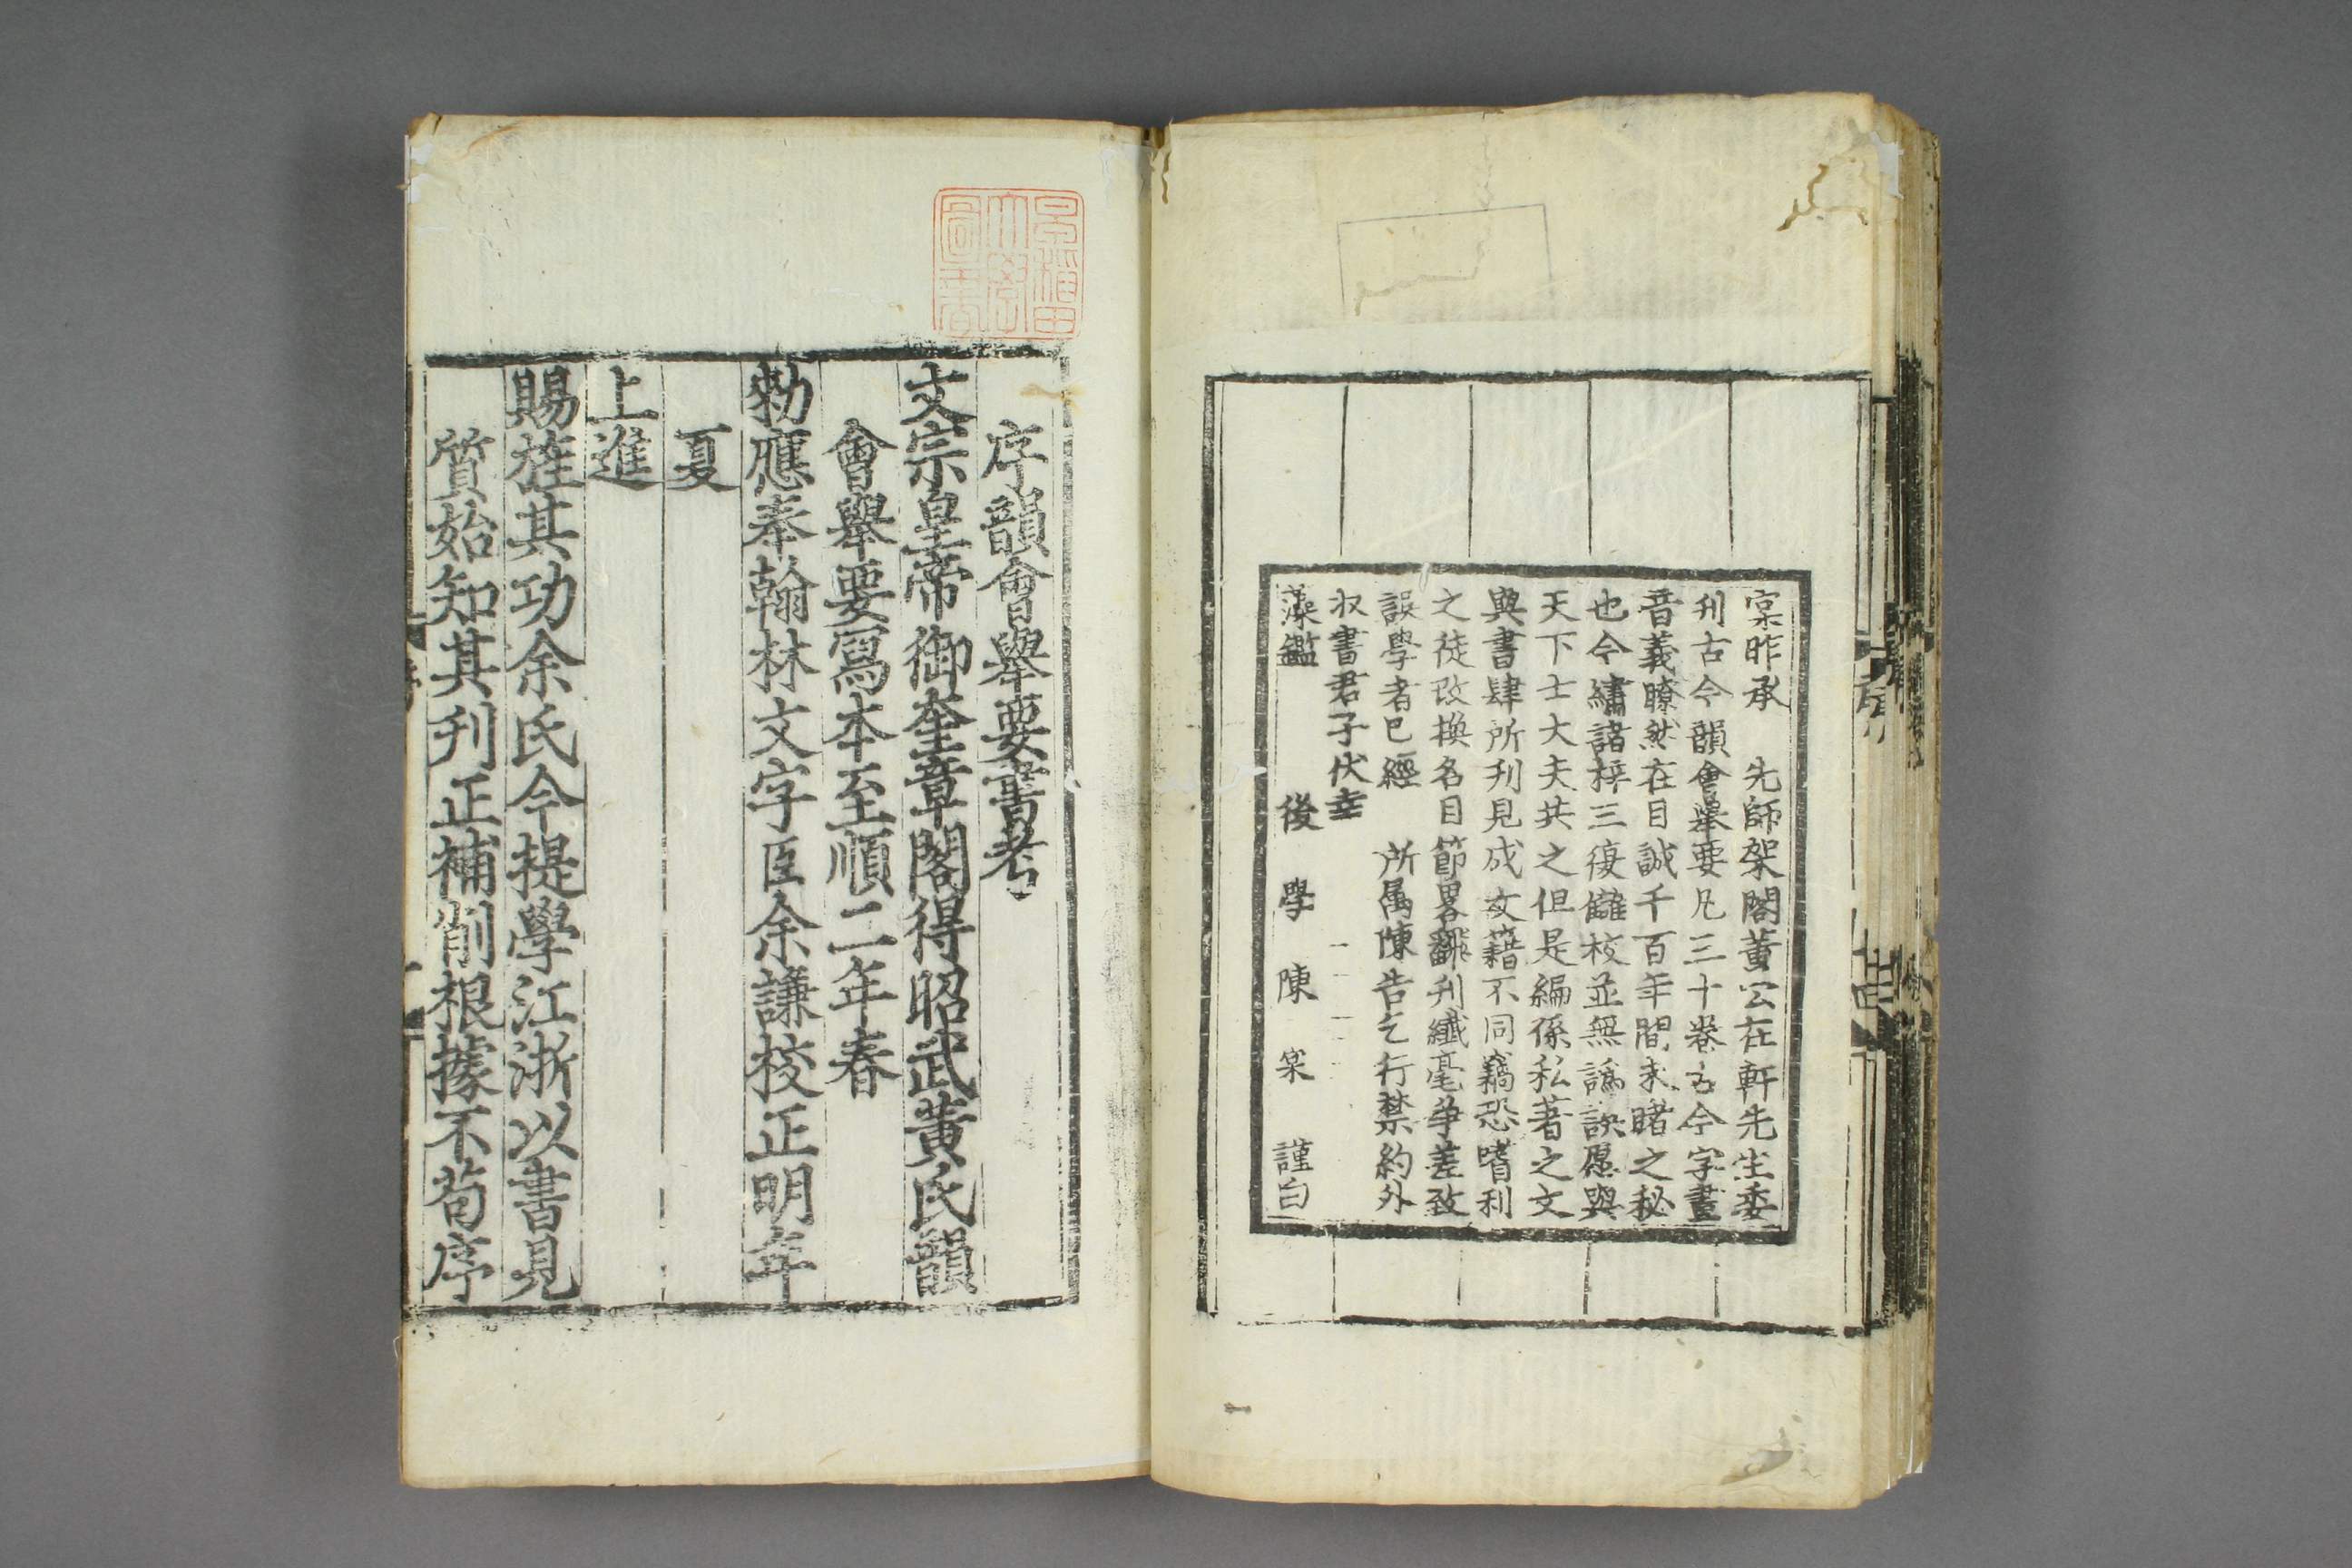 宲昨承　先師架閣董公在軒先生委
刋古今韻會舉要凡三十卷古今字畫
音義瞭然在目誠千百年間未睹之秘
也今繡諸梓三復讎校並無譌誤愿與
天下士大夫共之但是編係私著之文
與書肆所刋見成文籍不同竊恐嗜利
之徒改換名目節畧翻刋纖毫爭差致
誤學者已經　所属陳告乞行禁約外
收書君子伏幸
藻鑑
後學陳宲謹白
序韻會舉要書考
文宗皇帝御奎章閣得昭武黃氏韻
會舉要寫本至順二年春
勑應奉翰林文字臣余謙校正明年
夏
上進
賜旌其功余氏今提學江浙以書見
質始知其刋正補削根據不苟序
早稻田大學圖書